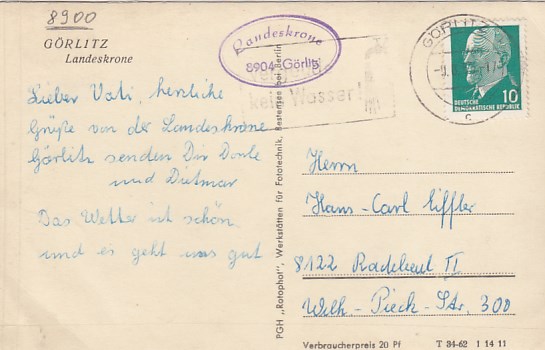 8900
GÖRLITZ
Landeskrone
Landeskrone
8904 Görlitz
kein Wasser!
GÖRLITZ
c
DEUTSCHE
DEMOKRATISCHE REPUBLIK
10
Lieber Vati, herzliche
Grüße von der Landeskrone
Görlitz senden Dir Dorle
und Dietmar
Das Wetter ist schön
und es geht uns gut
PGH „Rotophot", Werkstätten für Fototechnik, Bestensee bei Berlin
Herrn
Hans-Carl Eiffler
8122 Radebeul II
Wilh.-Pieck-Str. 300
Verbraucherpreis 20 Pf T 34-62 1 14 11